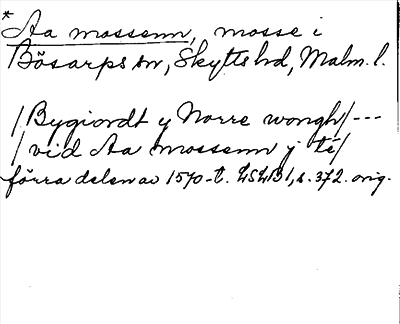 * Aa mossenn, mosse i
Bösarps sn, Skytts hd, Malm. l.
/Bygiordt y Norre wongh/---
/vid Aa mossenn j té/
förra delen av 1570-t. LSLB1, s. 372. orig.